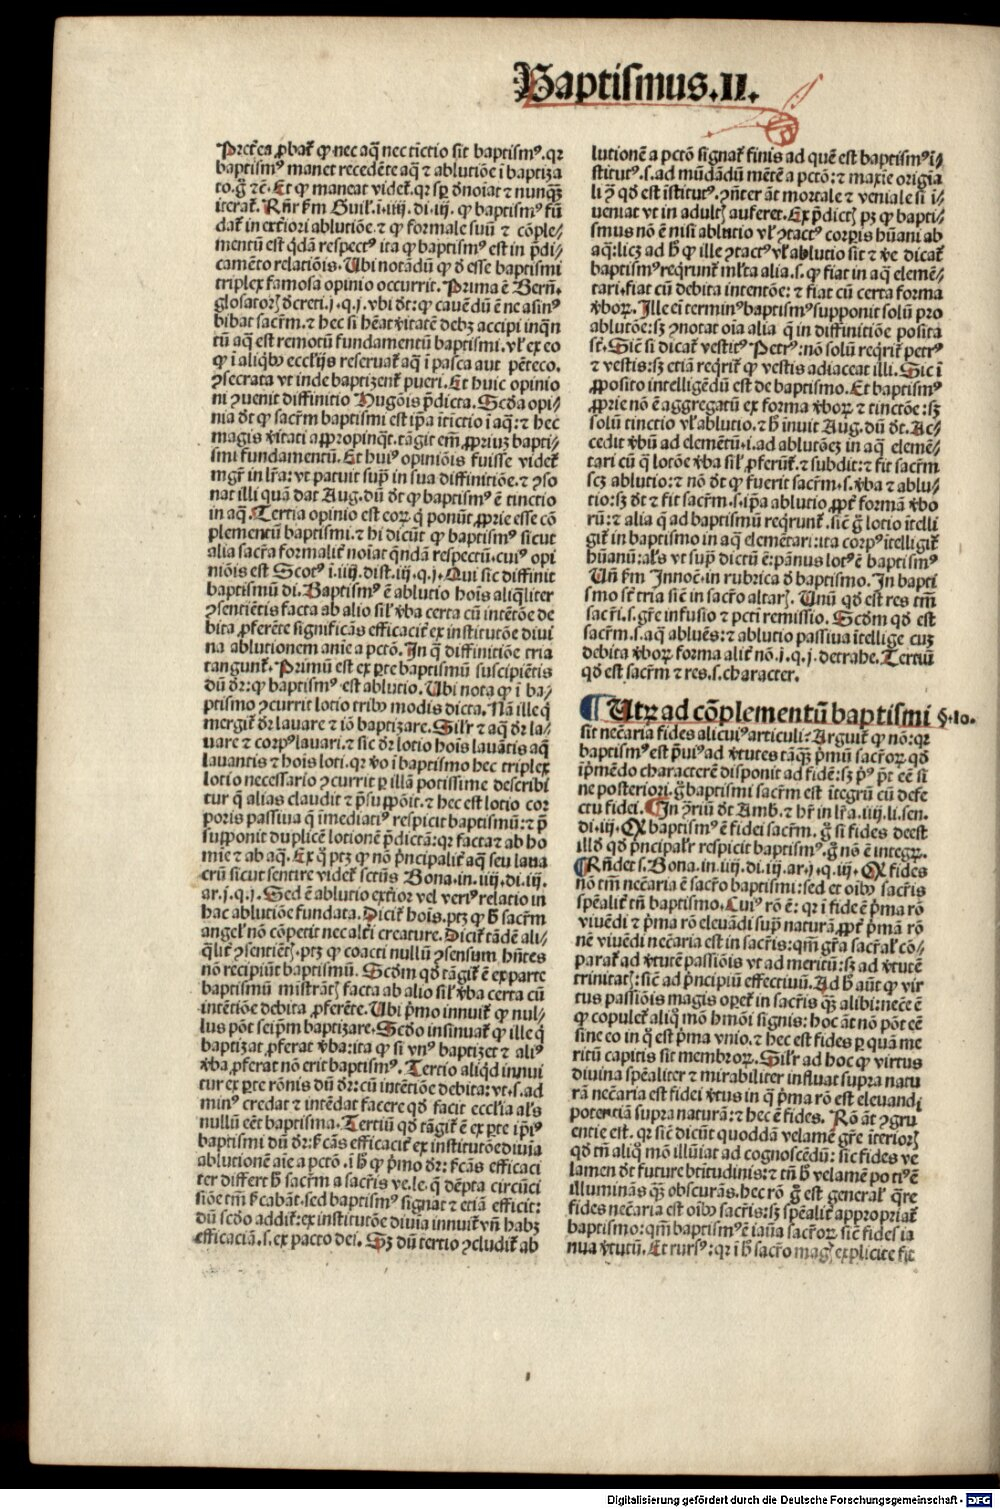 Baptismus.II.
Pretea ꝓbat̄ ꝙ nec aq̄ nec tīctio sit baptismꝰ.qꝛ
baptismꝰ manet recedēte aq̄ ⁊ ablutiōe ī baptiza
to.g̊ ⁊ē. Et ꝙ maneat videt̄.qꝛ sꝑ d̄noīat̄ ⁊ nunqꝫ
iterat̄. Rn̄r ẜm Guil.ī.iiij.di.iij. ꝙ baptismꝰ fū
dat̄ in ext̄iori ablutiōe.⁊ ꝙ formale suū ⁊ cōple⸗
mentū est q̄dā respectꝰ ita ꝙ baptismꝰ est in p̄di⸗
camēto relatiōis. Ubi notādū ꝙ d̄ esse baptismi
triplex famosa opinio occurrit. Prima ē Bern̄.
glosatorꝭ d̄creti.j.q.j.vbi d̄t:ꝙ cauēdū ē ne asinꝰ
bibat sacr̄m.⁊ hec si hēat v̄itatē debꝫ accipi inq̄n
tū aq̄ est remotū fundamentū baptismi.vl̓ ex eo
ꝙ ī aliqbꝰ eccl̓ijs reseruat̄ aq̄ ī pasca aut pēteco.
ꝯsecrata vt inde baptizent̄ pueri. Et huic opinio
ni ꝯuenit diffinitio Hugōis p̄dicta. Scd̓a opi⸗
nia d̄t ꝙ sacr̄m baptismi est ip̄a ītīctio ī aq̄:⁊ hec
magis v̄itati appropinq̄t.tāgit em̄ ꝓpriuꝫ bapti⸗
smi fundamentū. Et huiꝰ opiniōis fuisse videt̄
mgr̄ in lr̄a: vt patuit supͣ in sua diffinitiōe.⁊ ꝯso
nat illi quā dat Aug.dū d̄t ꝙ baptismꝰ ē tinctio
in aq̄. Tertia opinio est eoꝝ q̄ ponūt ꝓprie esse cō
plementū baptismi.⁊ hi dicūt ꝙ baptismꝰ sicut
alia sacr̄a formalit̄ noīat q̄ndā respectū.cuiꝰ opi
niōis est Scotꝰ ī.iiij.dist.iij.q.j. Qui sic diffinit
baptismū di. Baptismꝰ ē ablutio hoīs aliqͣliter
ꝯsentiētis facta ab alio sil̓ v̄ba certa cū intētōe de
bita ꝓferēte significās efficacit̄ ex institutōe diui
na ablutionem anīe a pctō. In q̄ diffinitiōe tria
tangunt̄. Primū est ex ꝑte baptismū suscipiētis
dū dr̄:ꝙ baptismꝰ est ablutio. Ubi nota ꝙ ī ba⸗
ptismo ꝯcurrit lotio tribꝰ modis dicta. Nā ille q̄
mergit̄ dr̄ lauare ⁊ iō baptizare. Silr̄ ⁊ aq̄ dr̄ la⸗
uare ⁊ corpꝰ lauari.⁊ sic dr̄ lotio hoīs lauātis aq̄
lauantis ⁊ hoīs loti.qꝛ v̄o ī baptismo hec triplex
lotio necessario ꝯcurrit ꝑ illā potissime describi
tur q̄ alias claudit ⁊ p̄suppōit.⁊ hec est lotio cor
poris passiua q̄ īmediatiꝰ respicit baptismū:⁊ p̄
supponit duplicē lotionē p̄dictā:qꝛ factā ab ho
mīe ⁊ ab aq̄. Ex q̊ ptꝫ ꝙ nō p̄ncipalit̄ aq̄ seu laua
crū sicut sentire videt̄ sctūs Bona.in.iiij.di.iij.
ar.j.q.j. Sed ē ablutio ext̄ior vel veriꝰ relatio in
hac ablutiōe fundata. Dicit̄ hoīs.ptꝫ ꝙ h̄ sacr̄m
angel̓ nō cōpetit nec alt̄i creature. Dicit̄ tādē ali⸗
q̄lit̄ ꝯsentiētꝭ.ptꝫ ꝙ coacti nullū ꝯsensum hn̄tes
nō recipiūt baptismū. Scd̓m qd̓ tāgit̄ ē ex parte
baptismū mīstrātꝭ facta ab alio sil̓ v̄ba certa cū
intētiōe debita ꝓferēte. Ubi p̄mo innuit̄ ꝙ nul⸗
lus pōt seip̄m baptizare. Scd̓o insinuat̄ ꝙ ille q̄
baptizat ꝓferat v̄ba:ita ꝙ si vnꝰ baptizet ⁊ aliꝰ
v̄ba ꝓferat nō erit baptismꝰ. Tertio aliqd̓ innui
tur ex ꝑte rōnis dū dr̄:cū intētiōe debita:vt.s.ad
minꝰ credat ⁊ intēdat facere qd̓ facit eccl̓ia al̓s
nullū eēt baptisma. Tertiū qd̓ tāgit̄ ē ex ꝑte ip̄iꝰ
baptismi dū dr̄:ẜcās efficacit̄ ex institutōe diuīa
ablutionē aīe a pctō.ī h̄ ꝙ p̄mo dr̄:ẜcās efficaci
ter differt h̄ sacr̄m a sacr̄is ve.le.q̄ dēpta circūci
siōe tm̄ ẜcabāt.sed baptismꝰ signat ⁊ etiā efficit:
dū scd̓o addit̄:ex institutōe diuīa innuit̄ vn̄ habꝫ
efficaciā.s.ex pacto dei. Sꝫ dū tertio ꝯcludit̄ ab
lutionē a pctō signat̄ finis ad quē est baptismꝰ ī⸗
stitutꝰ.s.ad mūdādū mētē a pctō:⁊ maxīe origīa
li ꝓ qd̓ est īstitutꝰ.ꝯn̄ter āt mortale ⁊ veniale si ī⸗
ueniat vt in adultꝭ aufēret. Ex p̄dictꝭ pꝫ ꝙ bapti⸗
smus nō ē nisi ablutio vl̓ ꝯtactꝰ corꝑis hūani ab
aq̄:licꝫ ad h̄ ꝙ ille ꝯtactꝰ vl̓ ablutio sit ⁊ v̄e dicat̄
baptismꝰ reqͥrunt̄ ml̓ta alia.s.ꝙ fiat in aq̄ elemē⸗
tari.fiat cū debita intentōe:⁊ fiat cū certa forma
v̄boꝝ. Ille eī terminꝰ baptismꝰ supponit solū pro
ablutōe:sꝫ ꝯnotat oīa alia q̄ in diffinitiōe posita
sr̄t. Sic̄ si dicat̄ vestitꝰ Petrꝰ:nō solū reqͥrit̄ petrꝰ
⁊ vestis:sꝫ etiā reqͥrit̄ ꝙ vestis adiaceat illi. Sic ī
ꝓposito intelligēdū est de baptismo. Et baptismꝰ
ꝓprie nō ē aggregatū ex forma v̄boꝝ ⁊ tinctōe:sꝫ
solū tinctio vl̓ ablutio.⁊ h̄ innuit Aug.dū d̄t. Ac⸗
cedit v̄bū ad elementū.i.ad ablutōeꝫ in aq̄ elemē⸗
tari cū q̄ lotōe v̄ba sil̓ ꝓferūt̄.⁊ subdit:⁊ fit sacr̄m
scꝫ ablutio:⁊ nō d̄t ꝙ fuerit sacr̄m.s.v̄ba ⁊ ablu⸗
tio:sꝫ d̄t ⁊ fit sacr̄m.s.ip̄a ablutio ꝓpt̄ formā v̄bo
rū:⁊ alia q̄ ad baptismū reqͥrunt̄.sic̄ g̊ lotio ītelli
git̄ in baptismo in aq̄ elemētari:ita corpꝰ ītelligit̄
hūanū:al̓s vt supͣ dictū ē:pānus lotꝰ ē baptismꝰ
Un̄ ẜm Innoc̄.in rubrica d̄ baptismo. In bapti
smo sr̄t tria sic̄ in sacr̄o altarꝭ. Unū qd̓ est res tm̄
sacr̄i.s.gr̄e infusio ⁊ pcti remissio. Scd̓m qd̓ est
sacr̄m.s.aq̄ abluēs:⁊ ablutio passiua ītellige cuꝫ
debita v̄boꝝ forma alit̄ nō.j.q.j.detrahe. Tertiū
qd̓ est sacr̄m ⁊ res.s.character.
¶ Utꝝ ad cōplementū baptismi §.10.
sit nec̄aria fides alicuiꝰ articuli? Arguit̄ ꝙ nō:qꝛ
baptismꝰ est p̄uiꝰ ad v̄tutes tāqꝫ p̄mū sacr̄oꝝ qd̓
īp̄mēdo characterē disponit ad fidē:sꝫ pͥꝰ pt̄ eē si
ne posteriori.g̊ baptismi sacr̄m est ītegrū cū defe
ctu fidei. ¶ In ꝯriū d̄t Amb.⁊ hr̄ in lr̄a.iiij.li.sen.
di.iij. Qꝛ baptismꝰ ē fidei sacr̄m. g̊ si fides deest
illd̓ qd̓ p̄ncipalr̄ respicit baptismꝰ.g̊ nō ē integꝝ.
¶ Rn̄det s.Bona.in.iiij.di.iij.ar.j.q.iij. Qꝛ fides
nō tm̄ nec̄aria ē sacr̄o baptismi:sed et oībꝰ sacr̄is
spēalit̄ tn̄ baptismo. Cuiꝰ rō ē: qꝛ ī fide ē p̄ma rō
viuēdi ⁊ p̄ma rō eleuādi supͣ naturā ꝓpt̄ p̄mā rō
nē viuēdi nec̄aria est in sacr̄is:qm̄ gr̄a sacr̄al̓ cō⸗
parat̄ ad v̄tutē passiōis vt ad meritū:sꝫ ad v̄tutē
trinitatꝭ:sic̄ ad p̄ncipiū effectiuū. Ad h̄ aūt ꝙ vir
tus passiōis magis oꝑet̄ in sacr̄is qꝫ alibi:nece ē
ꝙ copulet̄ aliq̊ mō hmōi signis: hoc āt nō pōt eē
sine eo in q̊ est p̄ma vnio.⁊ hec est fides ꝑ quā me
ritū capitis sit membroꝝ. Silr̄ ad hoc ꝙ virtus
diuina spēaliter ⁊ mirabiliter influat supra natu
rā nec̄aria est fidei v̄tus in q̄ p̄ma rō est eleuandi
potentiā supra naturā:⁊ hec ē fides. Rō āt ꝯgru
entie est. qꝛ sic̄ dicūt quoddā velamē gr̄e īteriorꝭ
qd̓ tn̄ aliq̊ mō illūīat ad cognoscēdū: sic fides ve
lamen d̄t future btitudinis:⁊ tn̄ h̄ velamē potiꝰ ē
illuminās qꝫ obscurās.hec rō g̊ est general̓ qͣre
fides nec̄aria est oībꝰ sacr̄is:sꝫ spēalit̄ appropriat̄
baptismo:qm̄ baptismꝰ ē ianua sacr̄oꝝ sic̄ fides ia
nua v̄tutū. Et rursꝰ:qꝛ ī h̄ sacr̄o magꝭ explicite fit
Digitalisierung gefördert durch die Deutsche Forschungsgemeinschaft - DFG